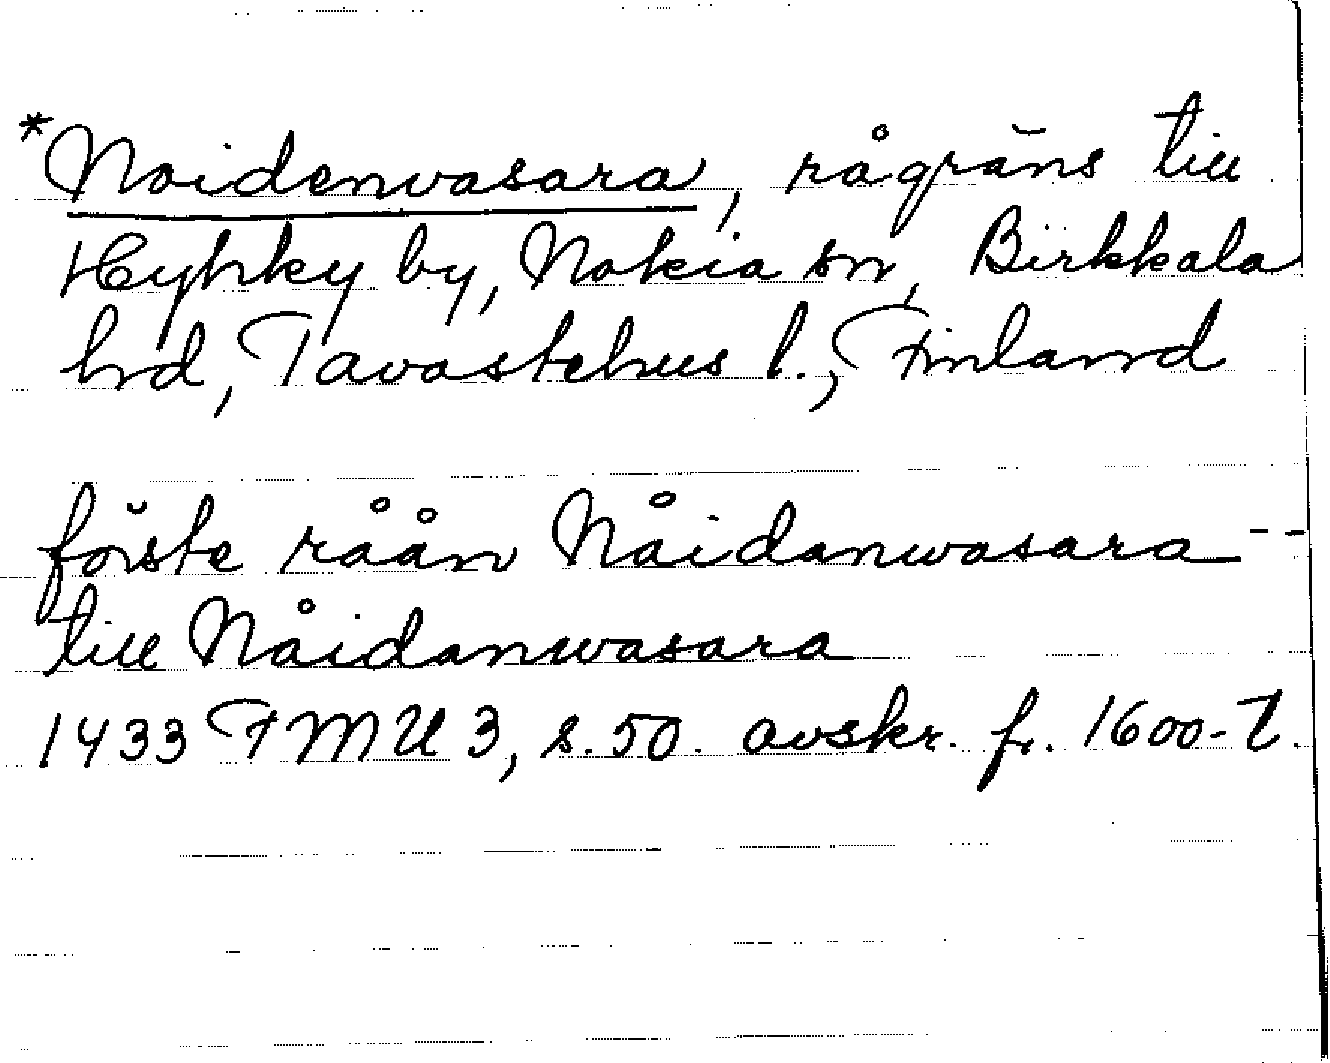 *Noidenvasara, rågräns till
Hyhky by, Nokia sn, Birkkala
hrd, Tavastehus l., Finland
förste råån Nåidanwasara --
till Nåidanwasara
1433 FMU 3, s. 50. avskr. fr. 1600-t.